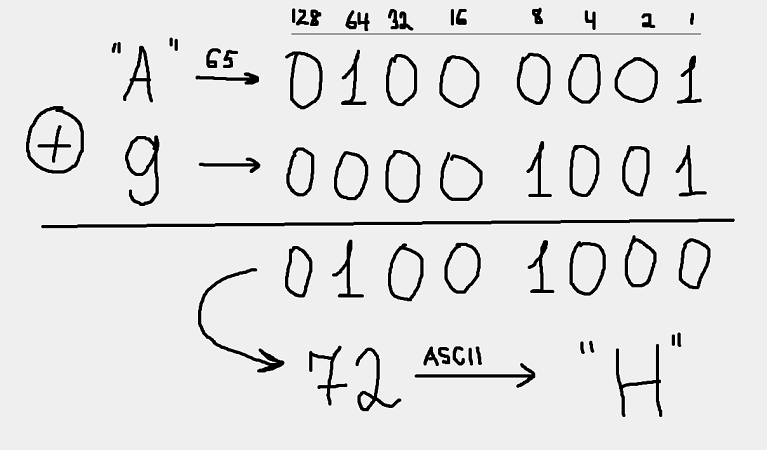 128 64 32 16 8 4 2 1
"A" 65 → 0100 0001
⊕ 9 → 0000 1001
0100 1000
72 ASCII → "H"